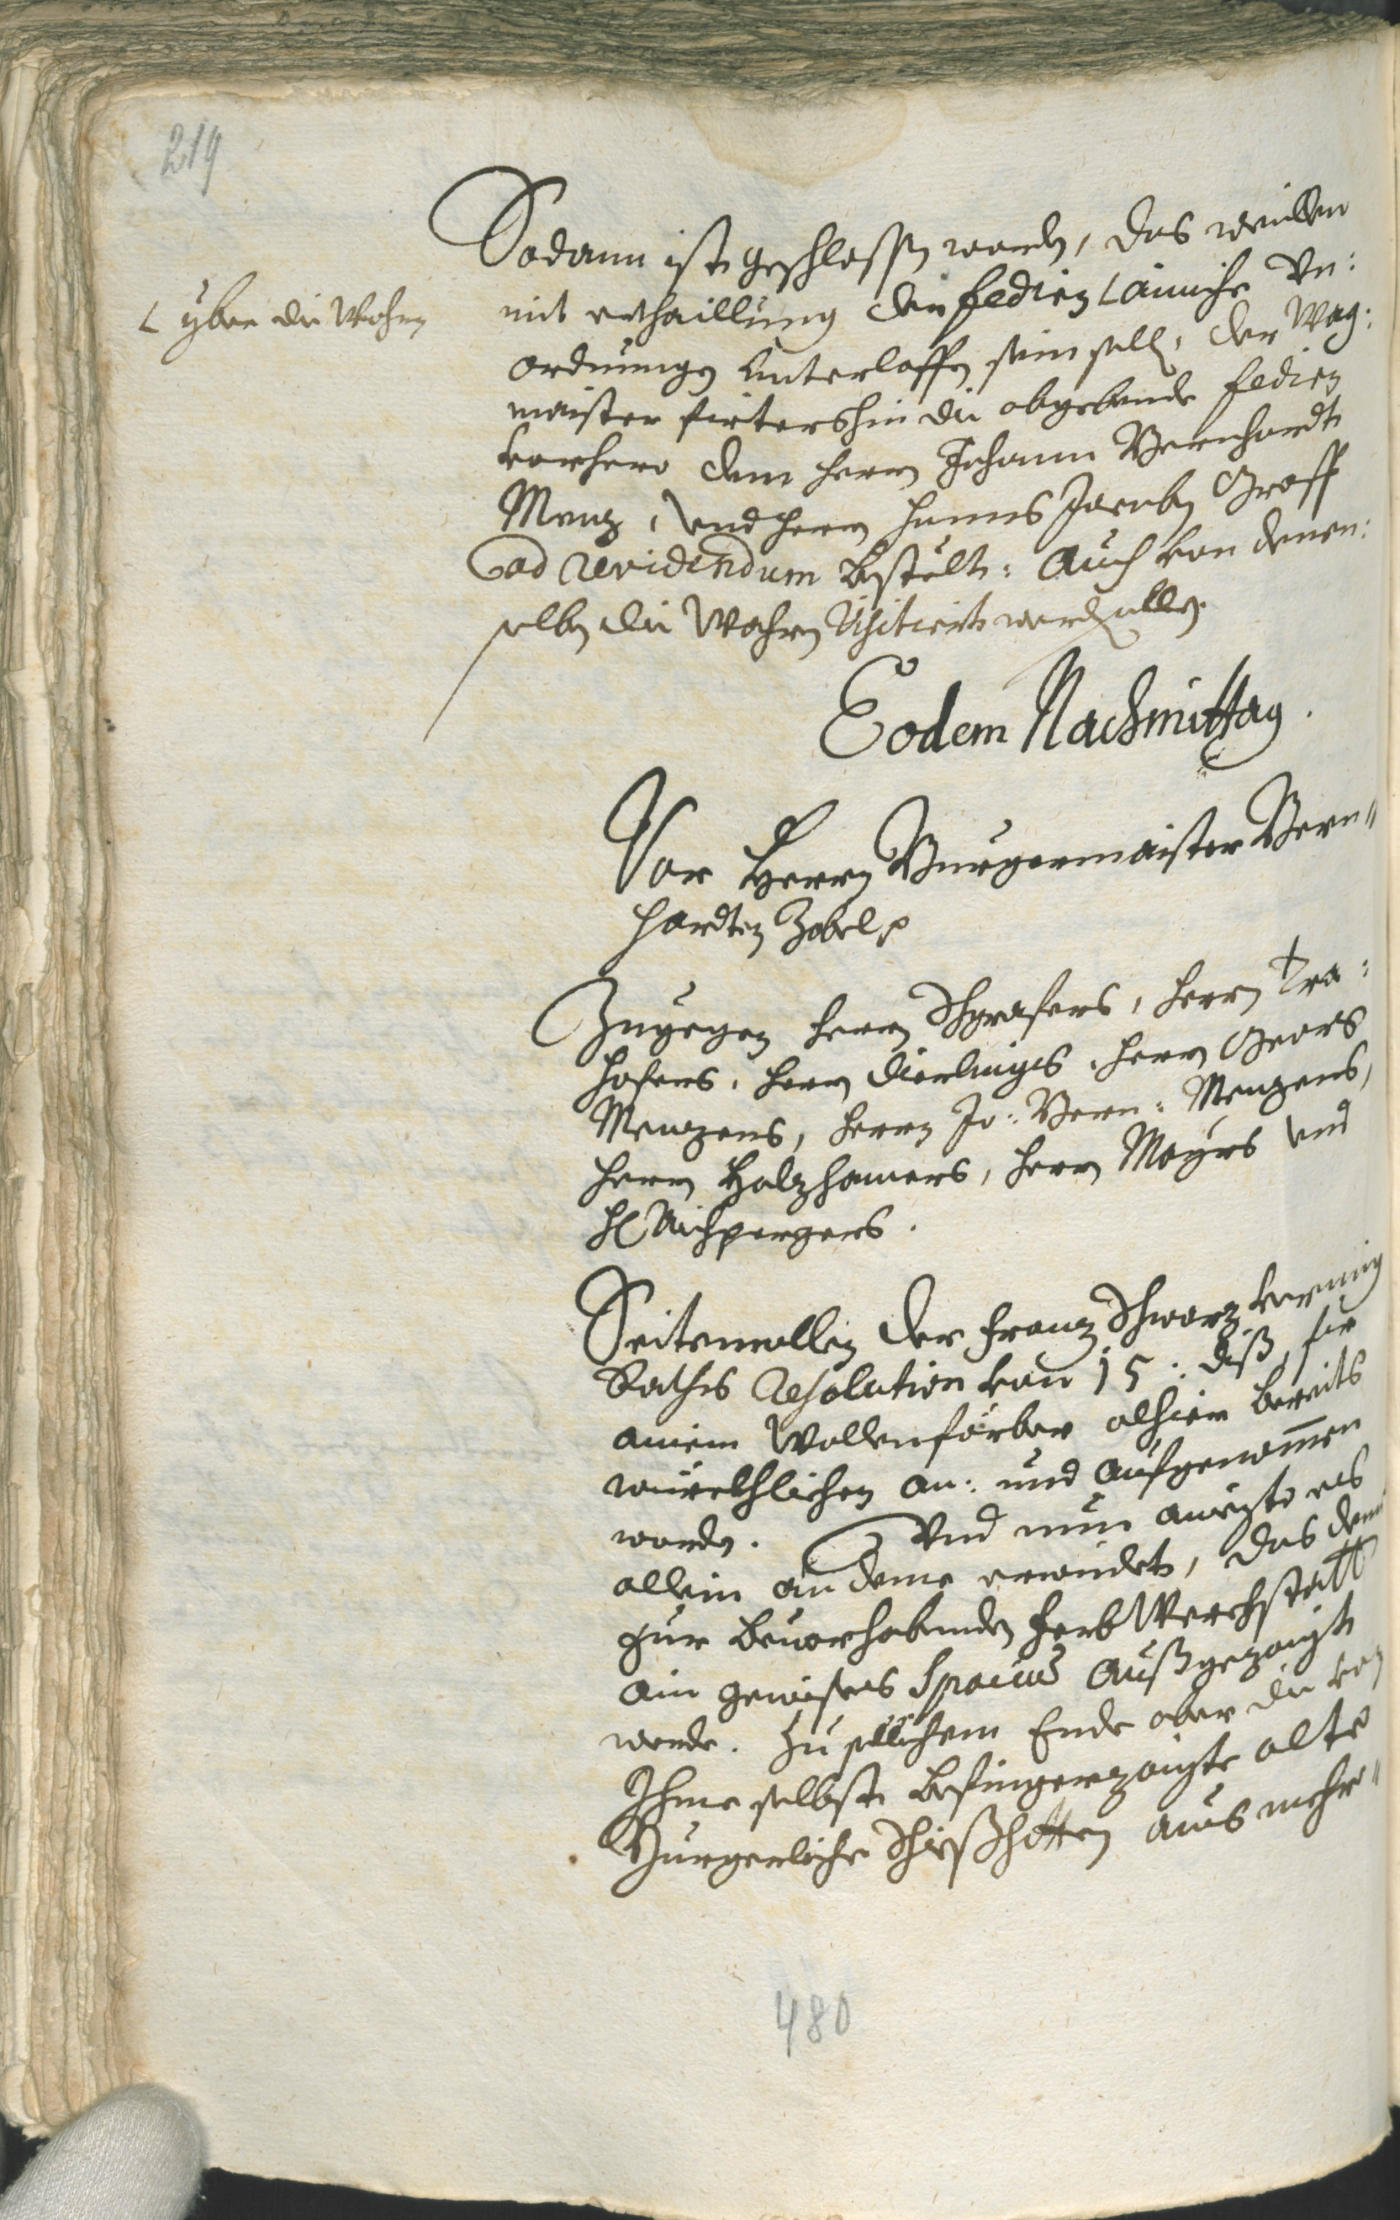 219
Sodann ist geschlossen worden, das weillen
mit erthaillung der fedien ⌊ ainiche Un:
⌊ yber die Wahren
ordnungen unterloffen sein solle, der Wag:
maister firtershin die abgebende fedien
vorhero dem herrn Johann Bernhardt
Menz, und herrn Hanns Jacoben Graff
ad revidendum bestelt: Auch von denen:
selben die Wahren visitiert werden sollen.
Eodem Nachmittag.
Vor Herrn Burgermaister Bern"
hardten Zobel p
Zugegen herrn Schgrafers, herrn Tra:
hofers, herrn Dierlingers, herrn Georg
Menzens, herrn Jo: Bern: Menzens,
herrn Holzhamers, herrn Mayrs und
H Aichpergers.
Seitemallen der Franz Schwarz vermig
Raths Resolution von 15: diß, fir
ainem Wollenfärber alhier bereits
würckhlichen an: und aufgenommen
worden. Und nun aniezto es
allein an deme erwindet, das deme
zur bevorhabenden Farb Werchstatt
ain gewises Spacium außgezaigt
werde. Zu sollichem Ende aber die von
Ihme selbst befingerzaigte alte
Burgerliche Schißhitten aus mehr"
480